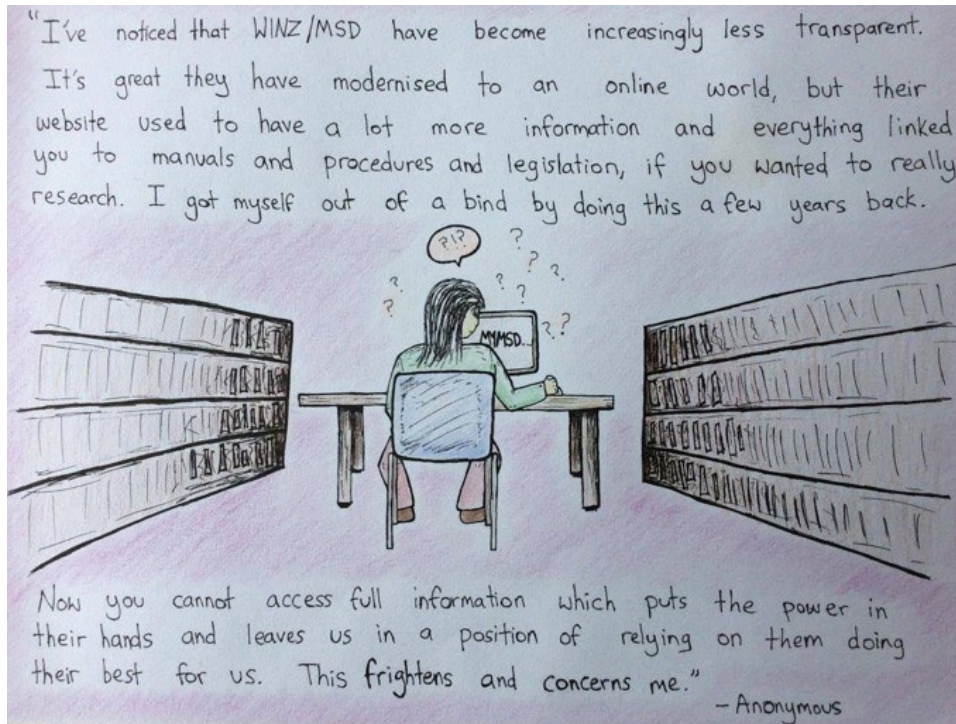 "I've noticed that WINZ/MSD have become increasingly less transparent.
It's great they have modernised to an online world, but their
website used to have a lot more information and everything linked
you to manuals and procedures and legislation, if you wanted to really
research. I got myself out of a bind by doing this a few years back.
?!?
? ? ? ? ? ? ? ? ?
MYMSD...
Now you cannot access full information which puts the power in
their hands and leaves us in a position of relying on them doing
their best for us. This frightens and concerns me."
- Anonymous